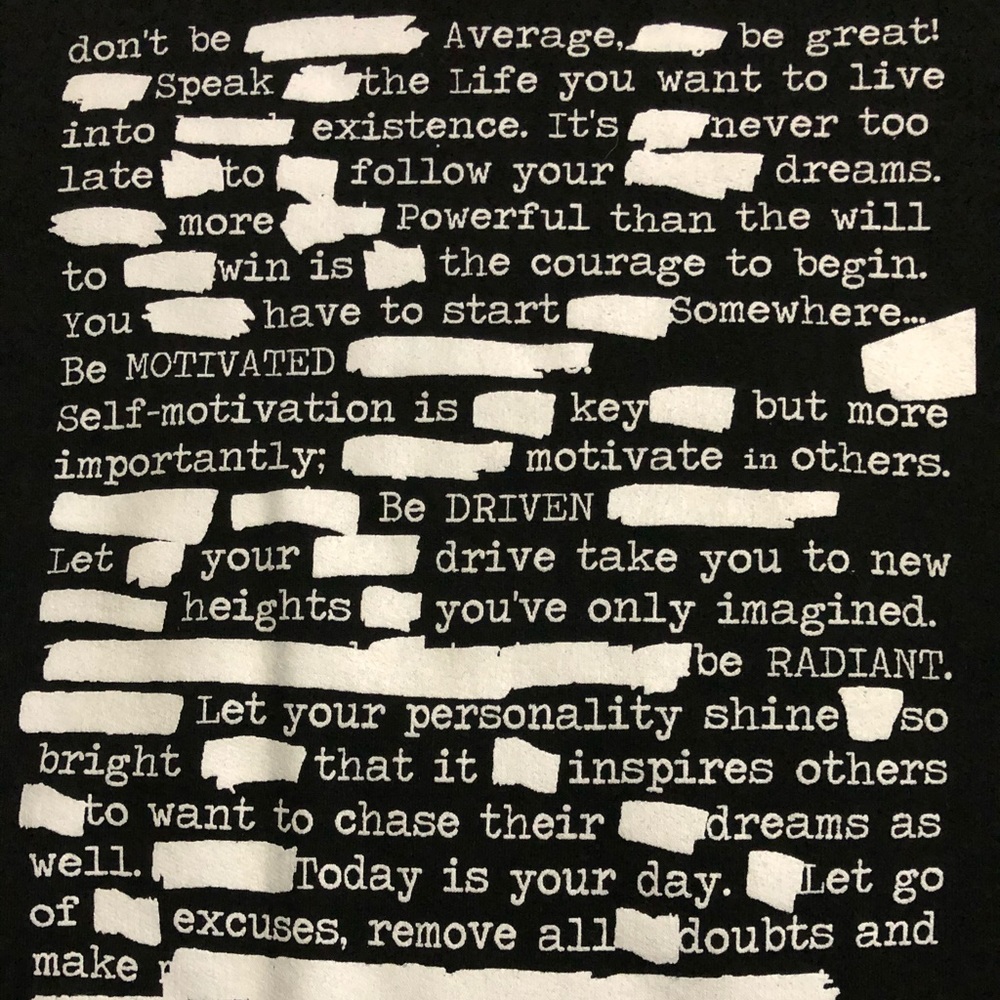 don't be Average, be great!
Speak the Life you want to live
into existence. It's never too
late to follow your dreams.
more Powerful than the will
to win is the courage to begin.
You have to start Somewhere...
Be MOTIVATED
Self-motivation is key but more
importantly; motivate in others.
Be DRIVEN
Let your drive take you to new
heights you've only imagined.
be RADIANT.
Let your personality shine so
bright that it inspires others
to want to chase their dreams as
well. Today is your day. Let go
of excuses, remove all doubts and
make